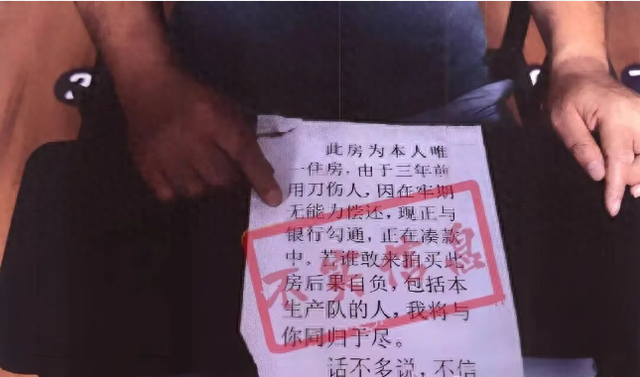 此房为本人唯
一住房,由于三年前
用刀伤人,因在牢期
无能力偿还,现正与
银行勾通,正在凑款
中。若谁敢来拍买此
房后果自负,包括本
生产队的人,我将与
你同归于尽。
话不多说,不信
不实信息